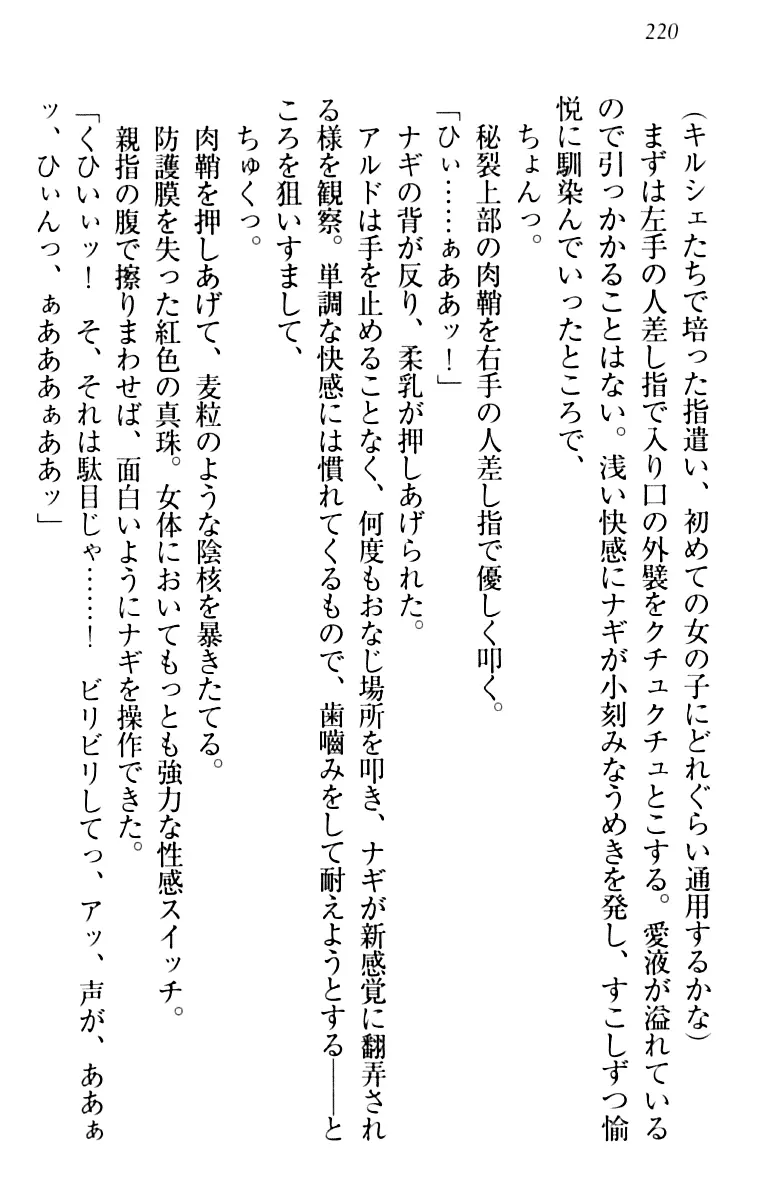 220
(キルシェたちで培った指遣い、初めての女の子にどれぐらい通用するかな)
まずは左手の人差し指で入り口の外襞をクチュクチュとこする。愛液が溢れている
ので引っかかることはない。浅い快感にナギが小刻みなうめきを発し、すこしずつ愉
悦に馴染んでいったところで、
ちょんっ。
秘裂上部の肉鞘を右手の人差し指で優しく叩く。
「ひぃ……ぁああッ！」
ナギの背が反り、柔乳が押しあげられた。
アルドは手を止めることなく、何度もおなじ場所を叩き、ナギが新感覚に翻弄され
る様を観察。単調な快感には慣れてくるもので、歯嚙みをして耐えようとする――と
ころを狙いすまして、
ちゅくっ。
肉鞘を押しあげて、麦粒のような陰核を暴きたてる。
防護膜を失った紅色の真珠。女体においてもっとも強力な性感スイッチ。
親指の腹で擦りまわせば、面白いようにナギを操作できた。
「くひいぃッ！　そ、それは駄目じゃ……！　ビリビリしてっ、アッ、声が、ああぁ
ッ、ひぃんっ、ぁあああぁああッ」